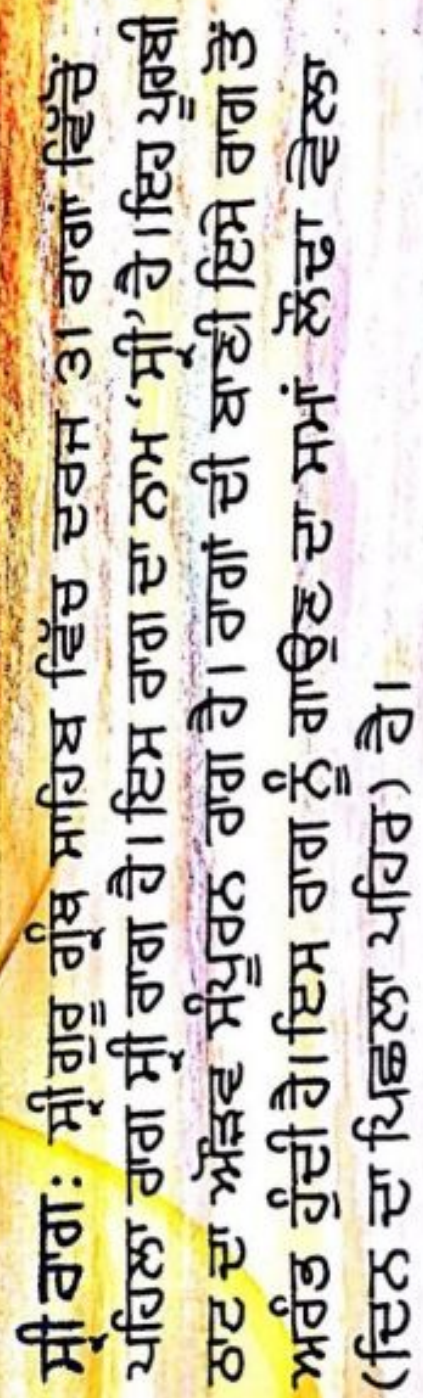 ਸ੍ਰੀ ਰਾਗ: ਸ੍ਰੀ ਗੁਰੂ ਗ੍ਰੰਥ ਸਾਹਿਬ ਵਿੱਚ ਦਰਜ 31 ਰਾਗਾਂ ਵਿੱਚੋਂ
ਪਹਿਲਾ ਰਾਗ ਸ੍ਰੀ ਰਾਗ ਹੈ। ਇਸ ਰਾਗ ਦਾ ਨਾਮ 'ਸ੍ਰੀ' ਹੈ। ਇਹ ਪੂਰਬੀ
ਠਾਟ ਦਾ ਔੜਵ ਸੰਪੂਰਨ ਰਾਗ ਹੈ। ਰਾਗਾਂ ਦੀ ਬਾਣੀ ਇਸੇ ਰਾਗ ਤੋਂ
ਅਰੰਭ ਹੁੰਦੀ ਹੈ। ਇਸ ਰਾਗ ਨੂੰ ਗਾਉਣ ਦਾ ਸਮਾਂ ਲੌਢਾ ਵੇਲਾ
(ਦਿਨ ਦਾ ਪਿਛਲਾ ਪਹਿਰ) ਹੈ।